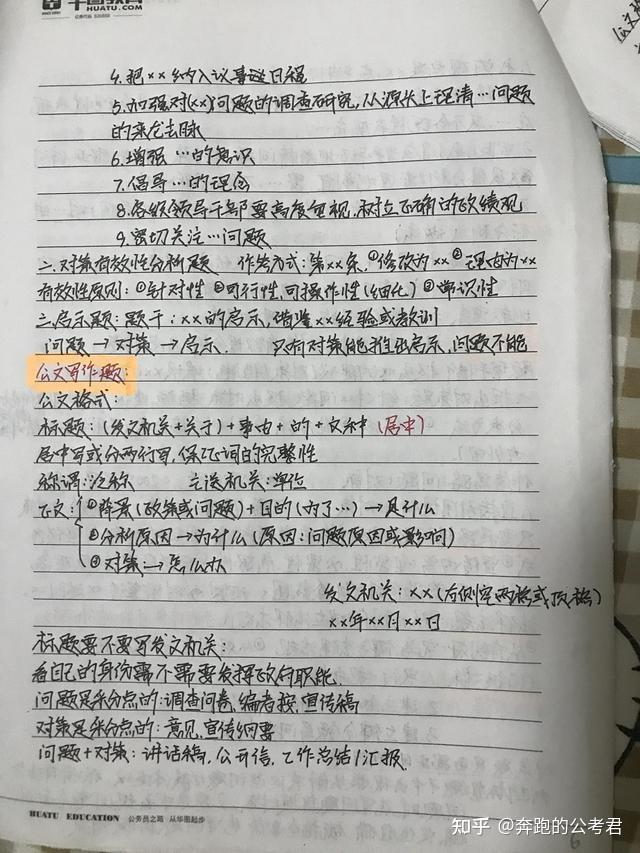 华图教育
HUATU.COM
4.把××纳入议事议程日程
5.加强对(××)问题的调查研究,从源头上理清…问题
的来龙去脉
6.增强…的意识
7.倡导…的理念
8.各级领导干部要高度重视,树立正确的政绩观
9.密切关注…问题
二.对策有效性分析题 作答方式:第××条,①修改为××②理由为××
有效性原则:①针对性②可行性,可操作性(细化)③常识性
三.启示题:题干:××的启示,借鉴××经验或教训
问题→对策→启示. 只有对策能推出启示,问题不能
公文写作题:
公文格式:
标题:(发文机关+关于)+事由+的+文种(居中)
居中写或分两行写,保证词的完整性
称谓:泛称 主送机关:单位
正文:①背景(政策或问题)+目的(为了…)→是什么
②分析原因→为什么(原因:问题原因或影响)
③对策→怎么办
发文机关:××(右侧空两格或顶格)
××年××月××日
标题要不要写发文机关:
看自己的身份需不需要发挥政府职能.
问题是采分点的:调查问卷,编者按,宣传稿
对策是采分点的:意见,宣传纲要
问题+对策:讲话稿,公开信,工作总结/汇报.
HUATU EDUCATION 公务员之路 从华图起步
知乎 @奔跑的公考君